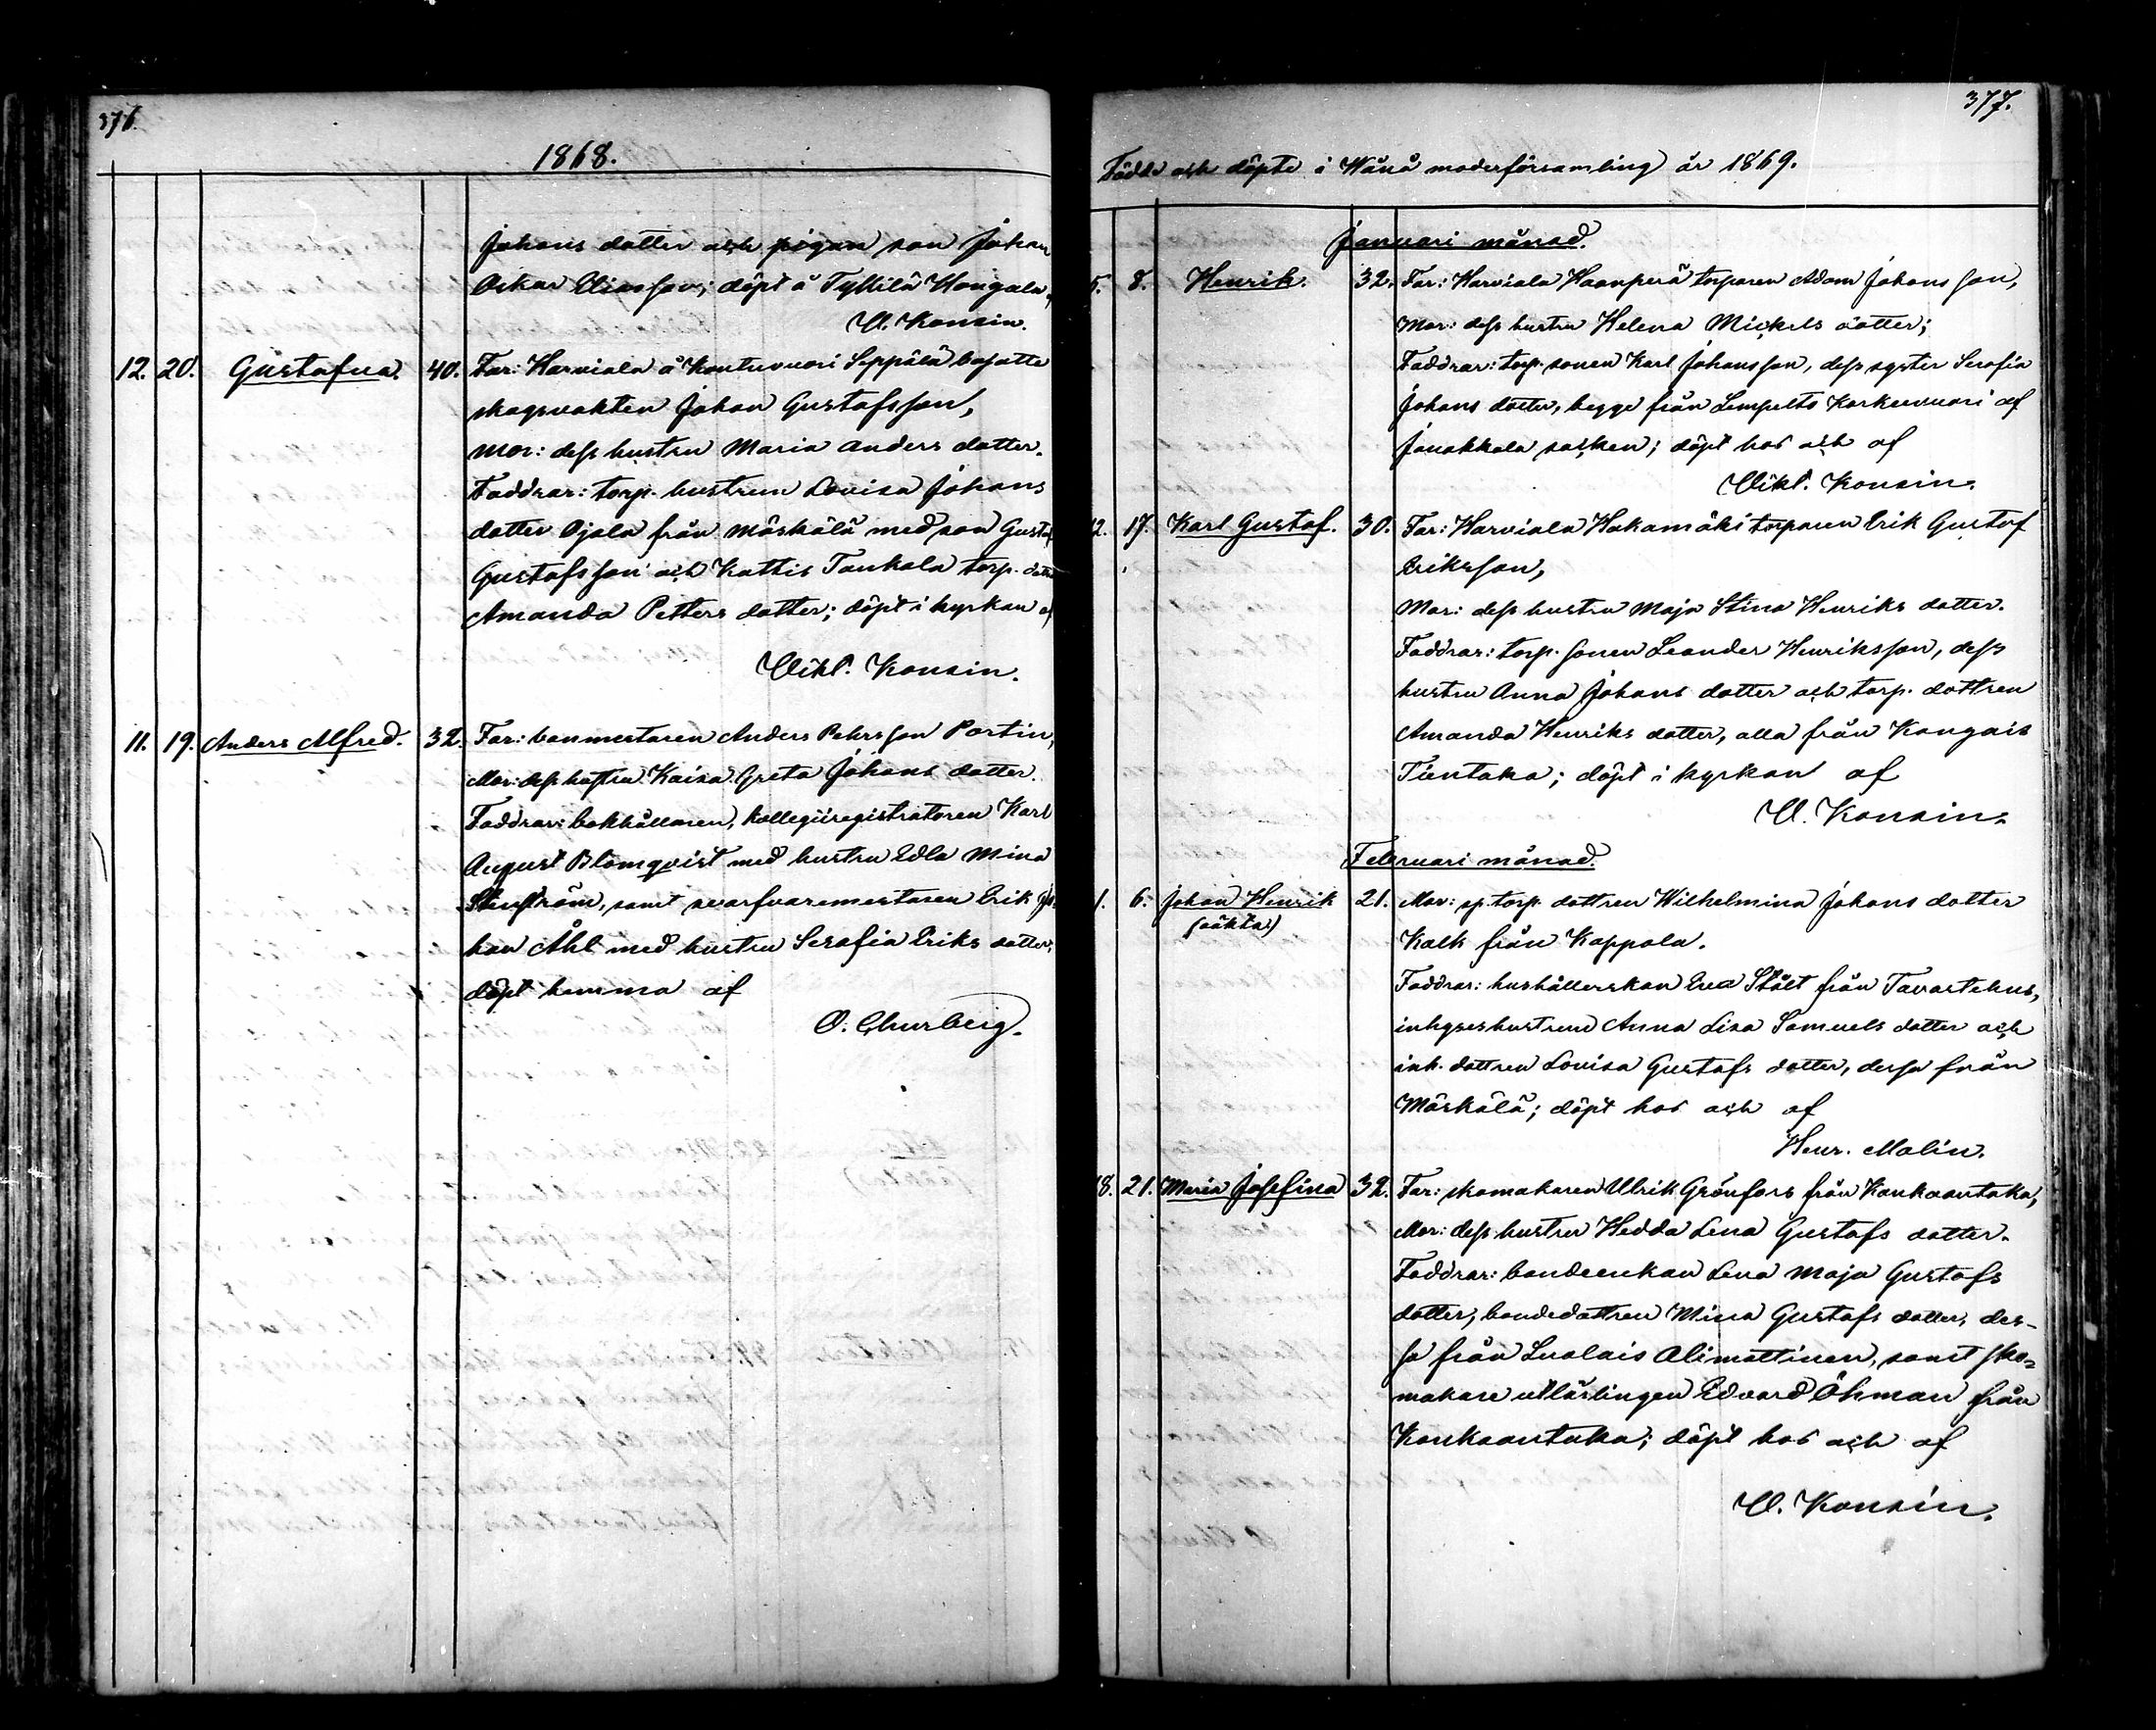 376.
1868.
Johans dotter och pigan son Johan
Oskar Eliasson; döpt å Tyllilä Hongala
V. Konsin.
12. 20. Gustafua. 40. Far: Harviala å Kontuvuori Seppälä bosatte
skogsvakten Johan Gustafsson,
Mor: dess hustru Maria Anders dotter.
Faddrar: torp. hustrun Lovisa Johans
dotter Ojala från Mäskälä med son Gustaf
Gustafsson och Kattis Tankala torp. dottr
Amanda Petters dotter; döpt i kyrkan af
Vikt. Konsin.
11. 19. Anders Alfred. 32. Far: banmestaren Anders Pehrsson Portin,
Mor: dess hustru Kaisa Greta Johans dotter.
Faddrar: bokhållaren, kollegiiregistratoren Karl
August Blomqvist med hustru Edla Mina
Stenström, samt svarfvaremestaren Erik Jo-
han Åhl med hustru Serafia Eriks dotter;
döpt hemma af
O. Churberg.
377.
Födde och döpte i Wånå moderförsamling år 1869.
Januari månad.
5. 8. Henrik. 32. Far: Harviala Haanperä torparen Adam Johansson,
Mor: dess hustru Helena Mickels dotter;
Faddrar: torp. sonen Karl Johansson, dess syster Serafia
Johans dotter, begge från Lempelto Korkeevuori af
Janakkala socken; döpt hos och af
Vikt. Konsin.
12. 17. Karl Gustaf. 30. Far: Harviala Hakamäki torparen Erik Gustaf
Eriksson,
Mor: dess hustru Maja Stina Henriks dotter.
Faddrar: torp. sonen Leander Henriksson, dess
hustru Anna Johans dotter och torp. dottren
Amanda Henriks dotter, alla från Kongais
Tientaka; döpt i kyrkan af
V. Konsin.
Februari månad.
1. 6. Johan Henrik 21. Mor: sp. torp. dottren Wilhelmina Johans dotter
(oäkta) Kalk från Kappola.
Faddrar: hushållerskan Eva Stålt från Tavastehus,
inhyseshustrun Anna Lisa Samuels dotter och
inh. dottren Lovisa Gustafs dotter, dessa från
Mäskälä; döpt hos och af
Henr. Malin.
18. 21. Maria Josefina 32. Far: skomakaren Ulrik Grönfors från Kankaantaka,
Mor: dess hustru Hedda Lena Gustafs dotter.
Faddrar: bondeenkan Lena Maja Gustafs
dotter, bondedottren Mina Gustafs dotter, des-
sa från Luolais Alimattinen, samt sko-
makare utlärlingen Edvard Öhman från
Kankaantaka; döpt hos och af
V. Konsin.